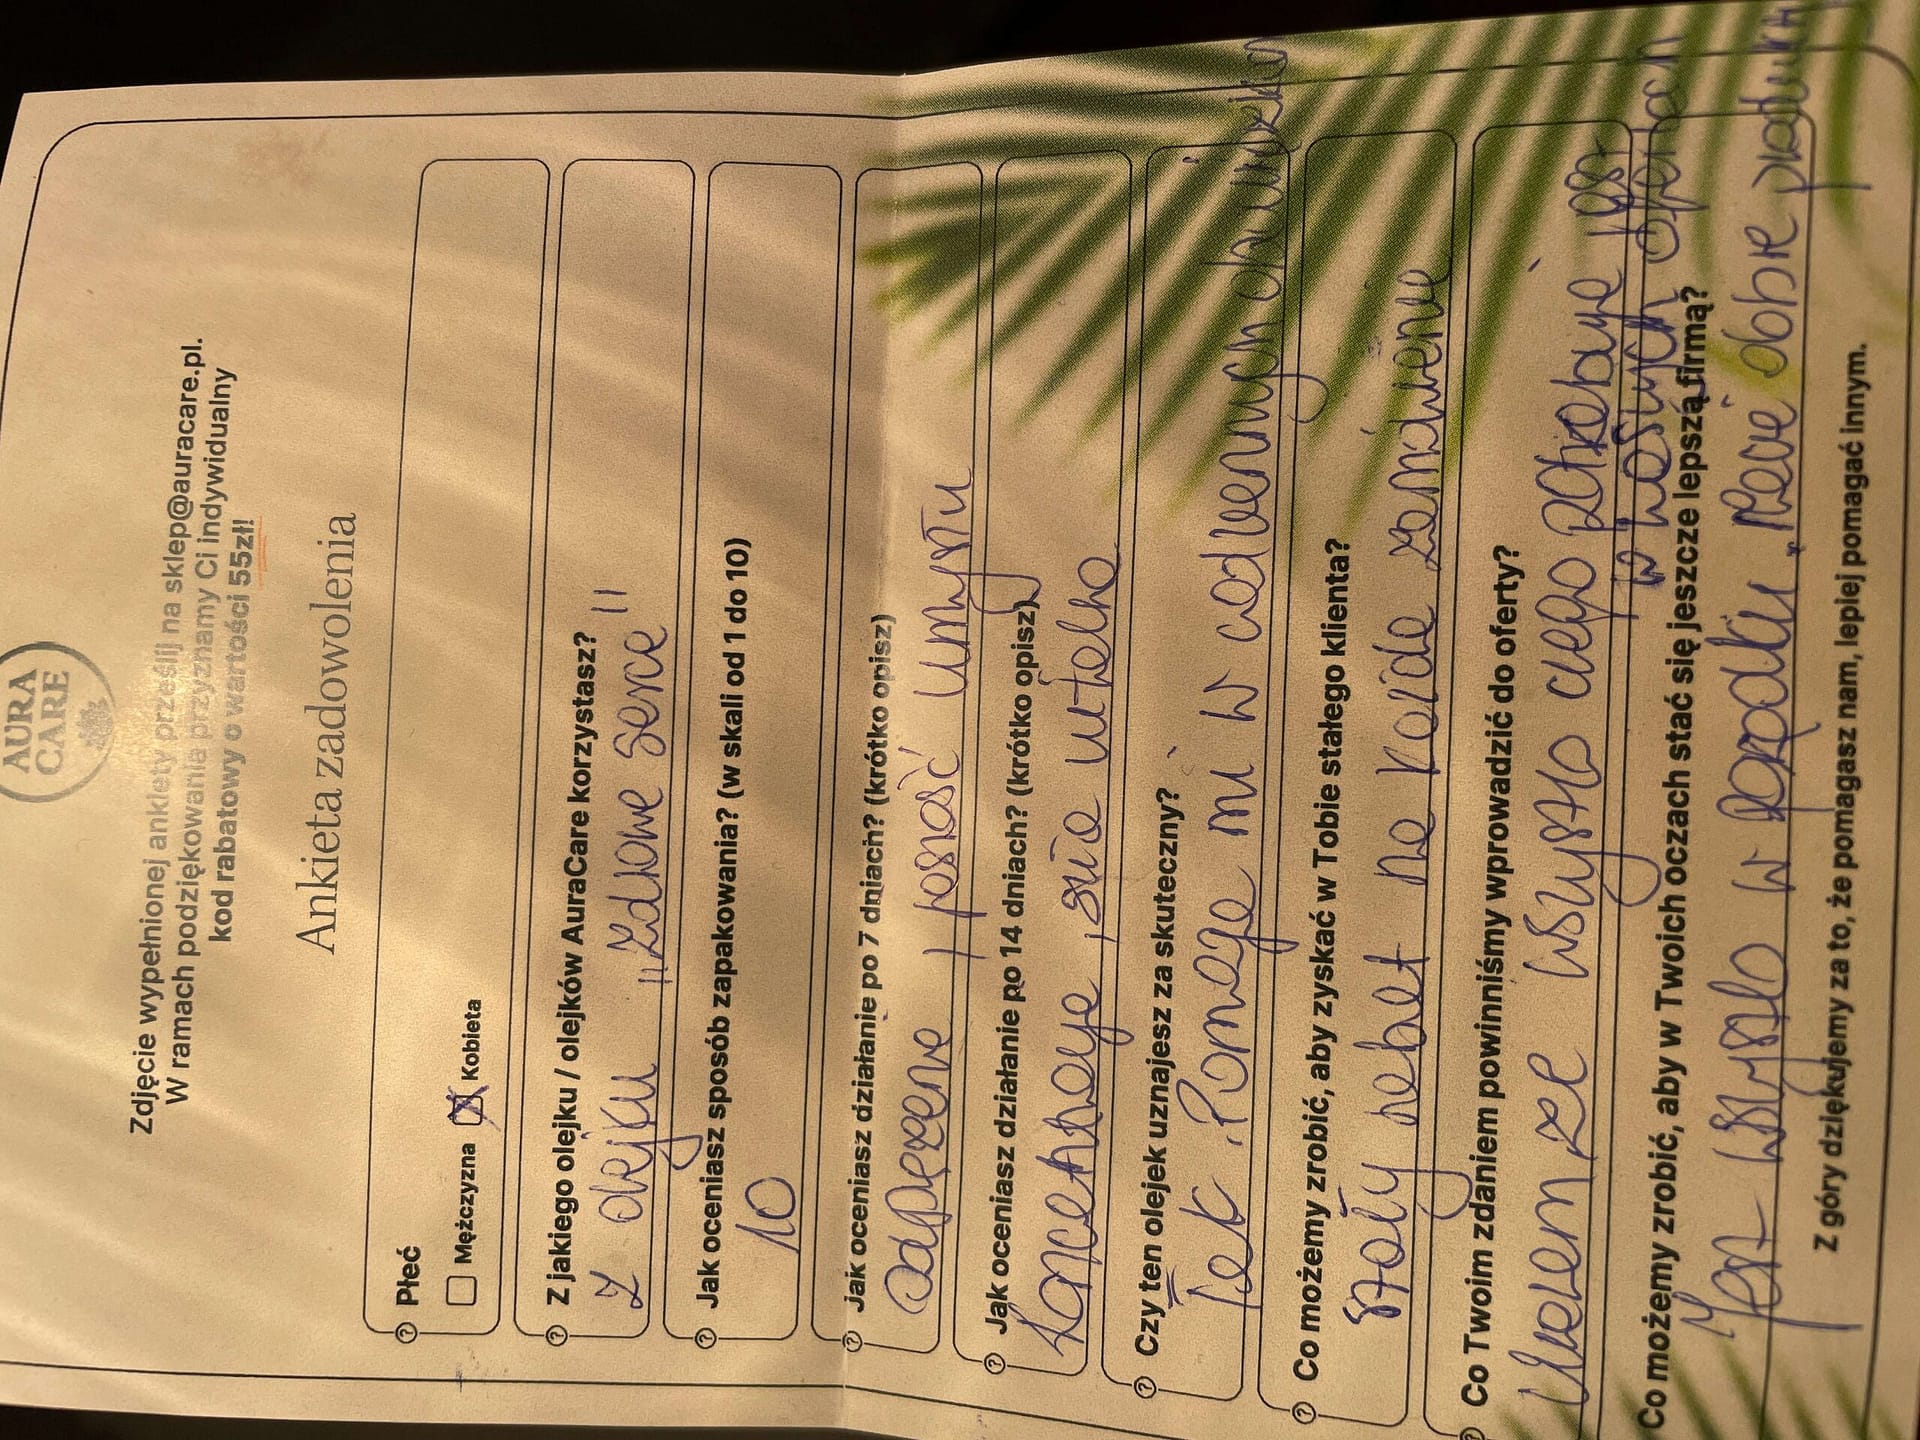 AURA
CARE
Zdjęcie wypełnionej ankiety prześlij na sklep@auracare.pl.
W ramach podziękowania przyznamy Ci indywidualny
kod rabatowy o wartości 55zł!
Ankieta zadowolenia
Płeć
Mężczyzna Kobieta
Z jakiego olejku / olejków AuraCare korzystasz?
Z olejku "Zdrowe serce"
Jak oceniasz sposób zapakowania? (w skali od 1 do 10)
10
Jak oceniasz działanie po 7 dniach? (krótko opisz)
odprężenie, jasność umysłu
Jak oceniasz działanie po 14 dniach? (krótko opisz)
koncentracje, witalna
Czy ten olejek uznajesz za skuteczny?
Tak. Pomaga mi w codziennych
Co możemy zrobić, aby zyskać w Tobie stałego klienta?
stały rabat na każde zamówienie
Co Twoim zdaniem powinniśmy wprowadzić do oferty?
Uważam że wszystko czego potrzebuje jest
w waszych ofertach
Co możemy zrobić, aby w Twoich oczach stać się jeszcze lepszą firmą?
Jest wszystko w porządku. Macie dobre produkty
Z góry dziękujemy za to, że pomagasz nam, lepiej pomagać innym.